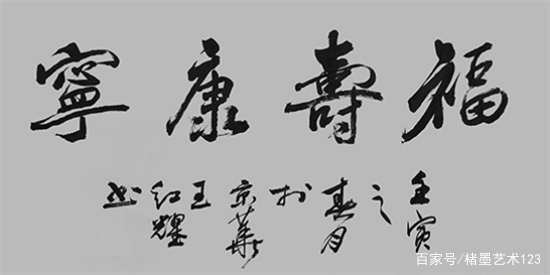 福壽康寧
壬寅之春月於京華王红书
百家号/楮墨艺术123